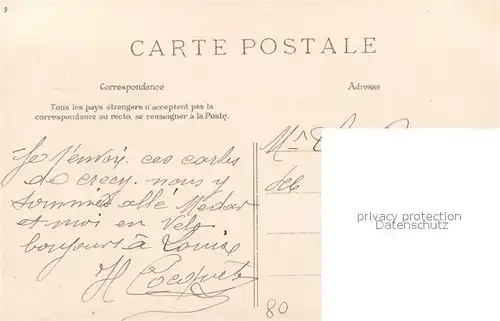 9
CARTE POSTALE
Correspondance
Adresse
Tous les pays étrangers n'acceptent pas la
correspondance au recto, se renseigner à la Poste.
Je t'envoi ces cartes
de crecy nous y
sommes allé Médar
et moi en Velo
bonjours à Louise
H Cocquet
privacy protection
Datenschutz
80